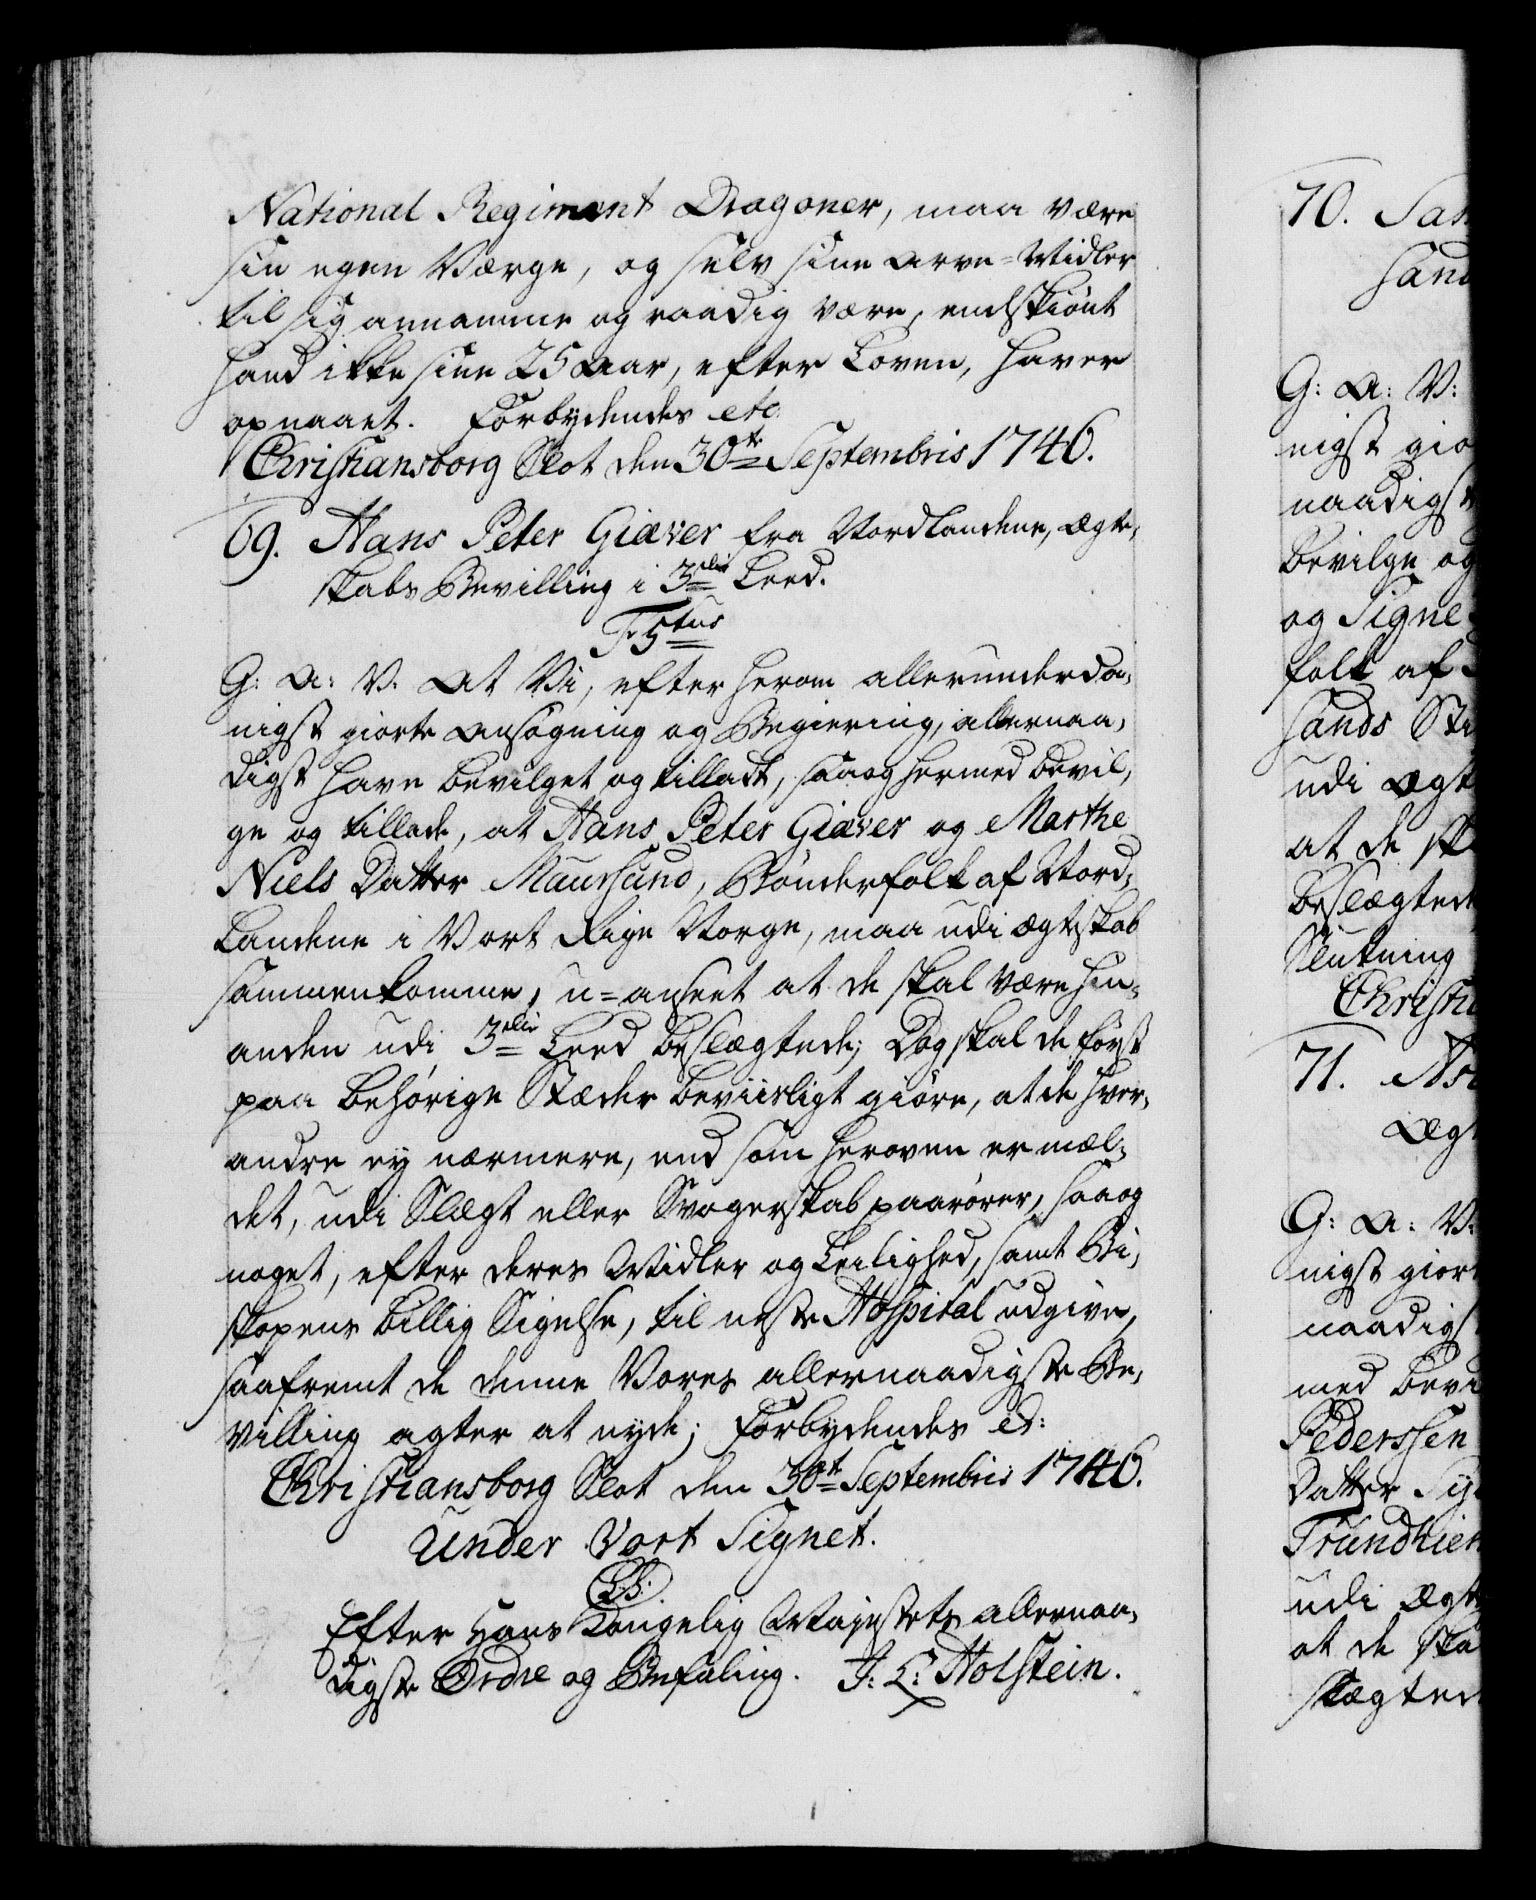 National Regiment Dragoner, maa være
sin egen Værge, og selv sine Arve=Midler
til sig annamme og raadig være, endskiønt
hand ikke sine 25 Aar, efter Loven, haver
opnaaet. Forbydendes etc
Christiansborg Slot den 30te Septembris 1746.
69. Hans Peter Giæver fra Nordlandene, Ægte,
skabs Bevilling i 3die Leed.
F 5tus
G: A: V. At Vi, efter herom allerunderda,
nigst giorte Ansøgning og Begiering, allernaa,
digst have bevilget og tilladt, saa og hermed bevil,
ge og tillade, at Hans Peter Giæver og Marthe
Niels Datter Maursund, Bønderfolk af Nord,
Landene i Vort Rige Norge, maa udi Ægteskab
sammenkomme, u=anseet at de skal være hin,
anden udi 3die Leed beslægtede; Dog skal de først
paa behørige Stæder beviisligt giøre, at de hver,
andre ey nærmere, end som heroven er mæl,
det, udi Slægt eller Svogerskab paarører, saa og
noget, efter deres Midler og Leilighed, samt Bi,
skopens billig Sigelse, til neste Hospital udgive,
saafremt de denne Vores allernaadigste Be,
villing agter at nyde; Forbydendes etc:
Christiansborg Slot den 30te Septembris 1746.
Under Vort Signet.
L.S.
Efter Hans Kongelig Majestets allernaa,
digste Ordre og Befaling. J: L: Holstein.
70. San
sand
G: A: V:
nigst gio
naadigst
bevilge og
og Signe
folk af
sands Sti
udi Ægt
at de sk
beslægted
Slutning
Christi
71.
Ægt
G: A: V:
nigst giort
naadigs
med bevi
Pedersen
Datter
Trundhiem
udi Ægt
at de ska
slægted